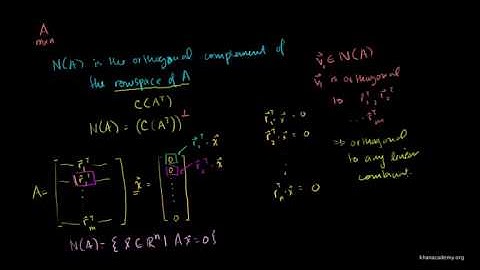 A
m×n
N(A) is the orthogonal complement of
the rowspace of A
C(Aᵀ)
N(A) = (C(Aᵀ))^⊥
A = [ r⃗₁ᵀ r⃗₂ᵀ ⋮ r⃗ₘᵀ ] x⃗ = [ 0 0 ⋮ 0 ]
r⃗₁ᵀ · x⃗
r⃗₂ᵀ · x⃗
N(A) = { x⃗ ∈ ℝⁿ | Ax⃗ = 0 }
r⃗₁ᵀ · x⃗ = 0
r⃗₂ᵀ · x⃗ = 0
⋮
· x⃗ = 0
∈ N(A)
is orthogonal
to
⇒ orthogonal
to any linear
khanacademy.org